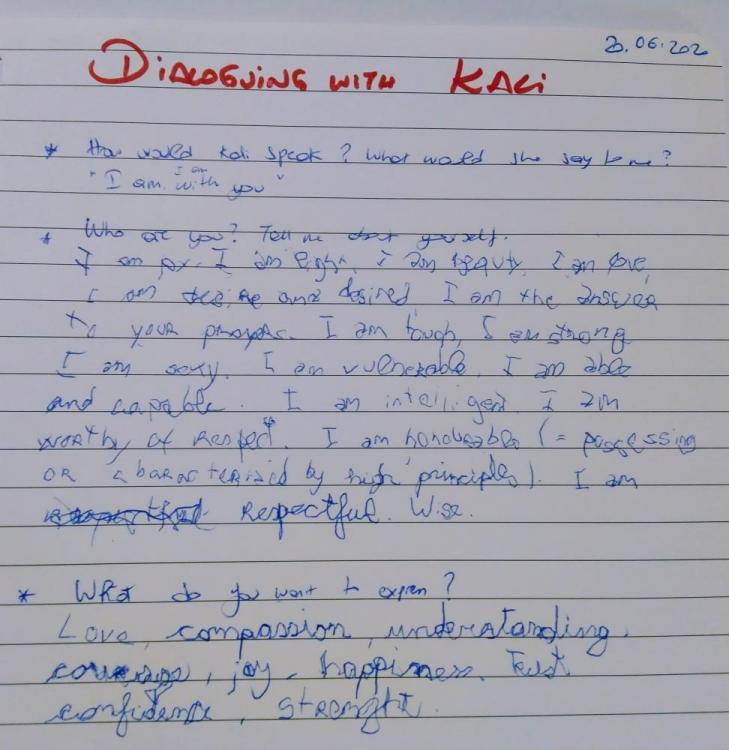 20.06.202
DIALOGUING WITH KALI
* How would Kali speak? What would she say to me?
I am
"I am with you"
* Who are you? Tell me about yourself.
I am I am light, I am beauty. I am love,
I am desire and desired. I am the answer
to your prayers. I am tough, I am strong
I am sexy. I am vulnerable. I am able
and capable. I am intelligent. I am
worthy of respect. I am honourable (= possessing
or characterized by high principles). I am
respectful. Wise.
* What do you want to express?
Love, compassion, understanding,
courage, joy, happiness. Trust
confidence, strenght.